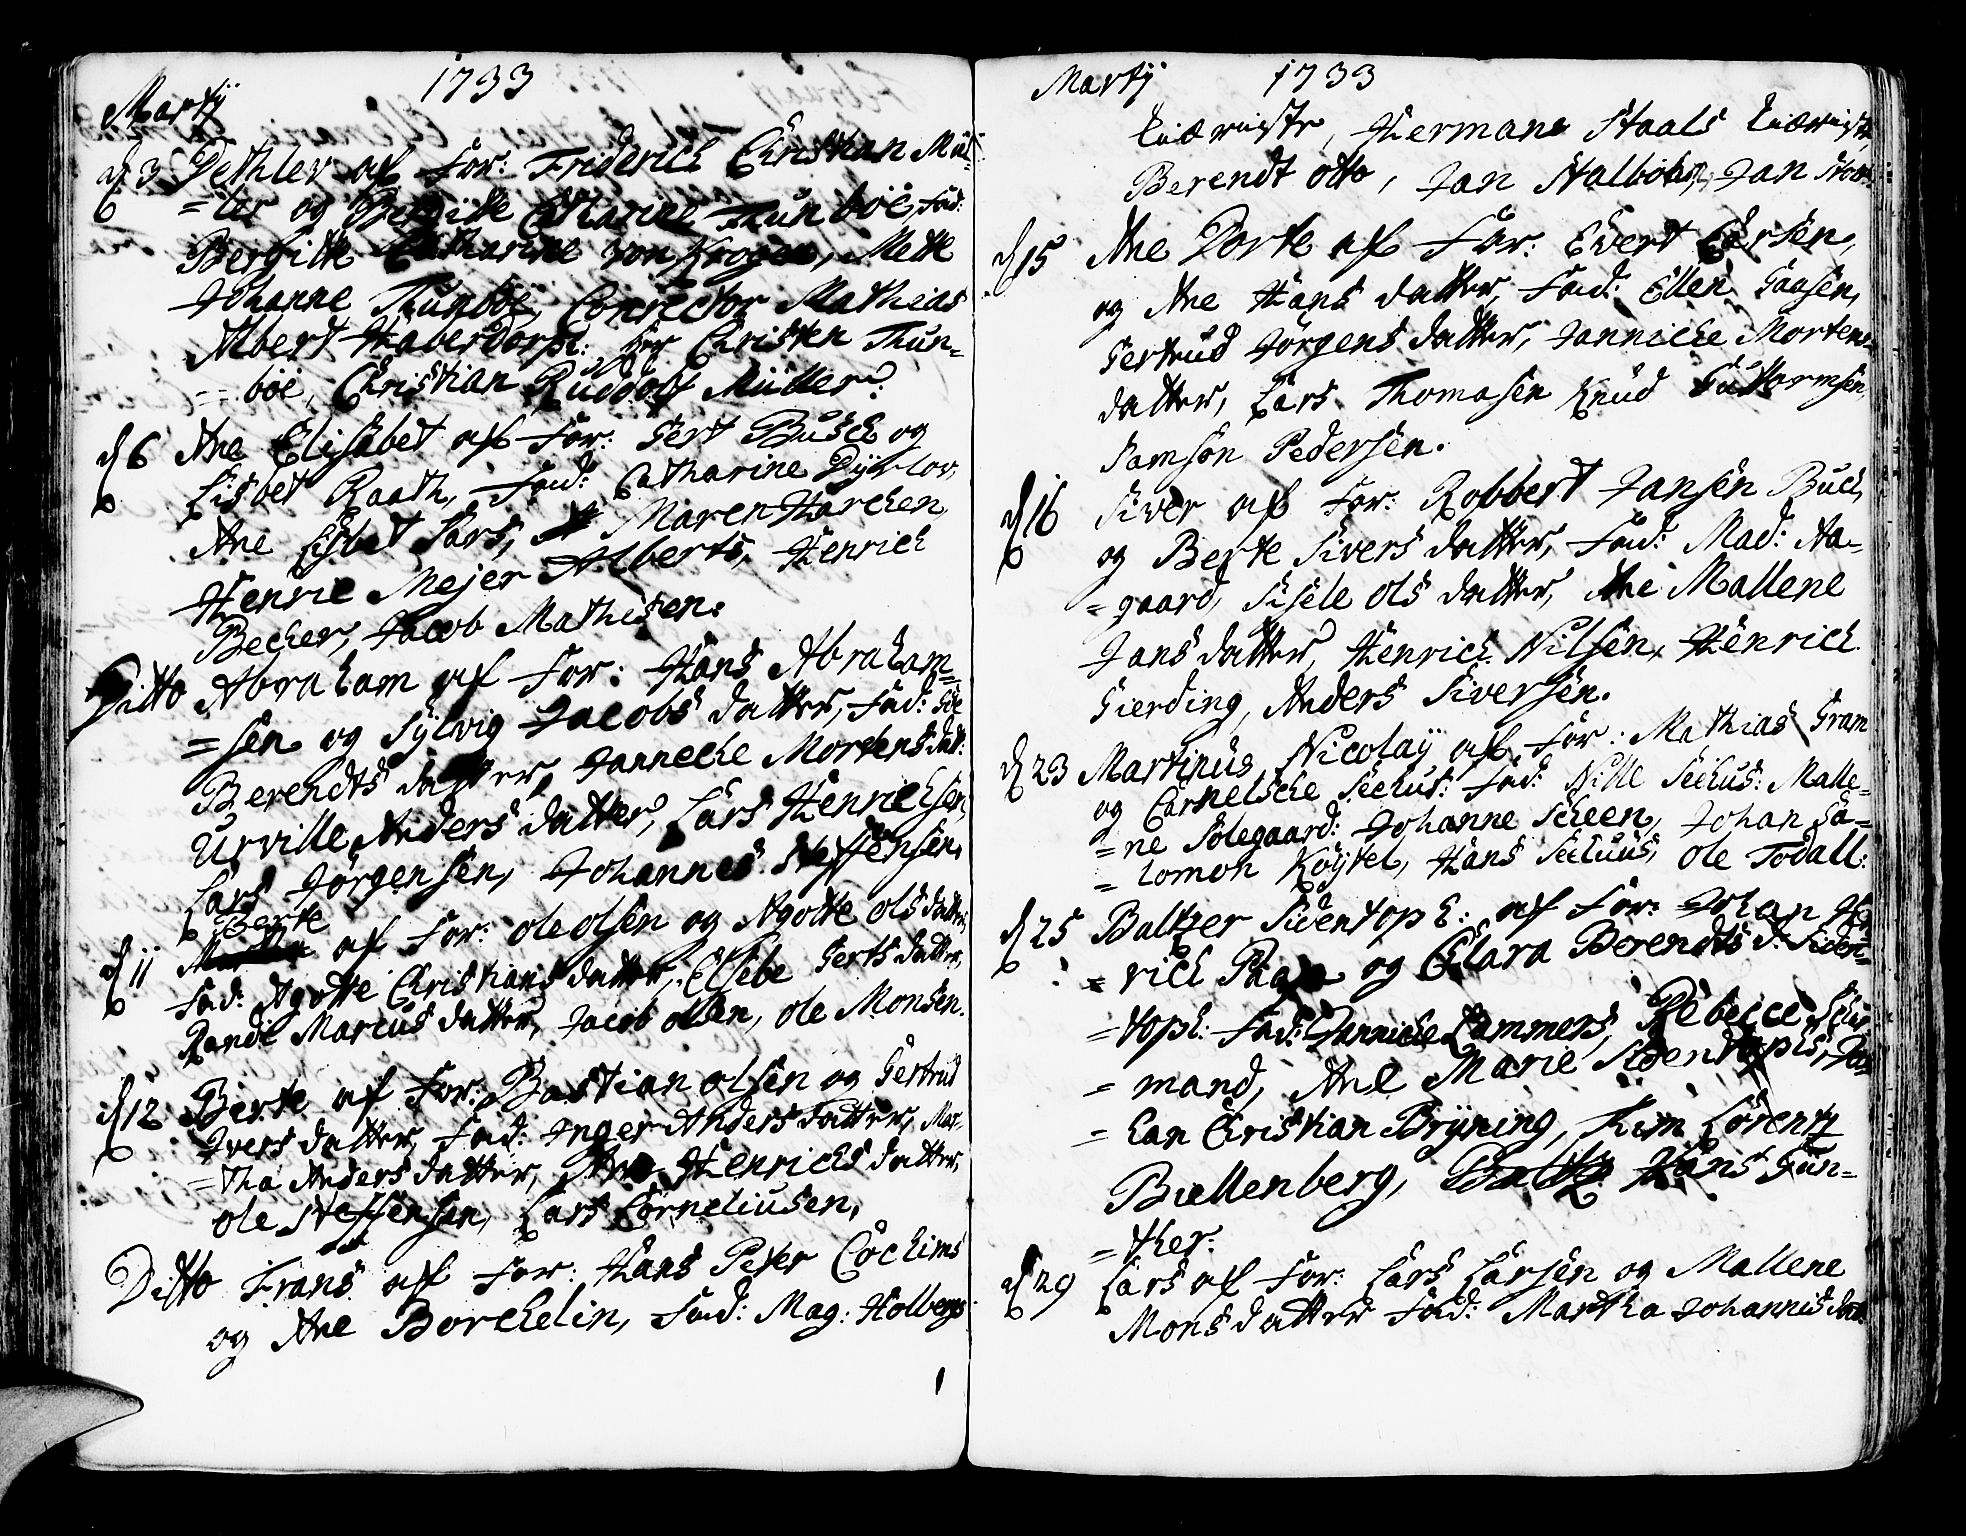 1733
Martÿ
d 3 Dethlev af For: Friderich Christian Mül-
=ler og Bergitte Catharine Thunböe, Fad:
Bergitte Catharine von Krogen, Mette
Johanne Thunböe, Conrector Mathias
Albert Haberdorph: Her Christen Thun-
== böe, Christian Ruddolf Müller.
d 6 Ane Elisabet af For: Gert Busch og
Lisbet Raath, Fad: Catharine Dÿrlov,
Ane Lisbet Sars, Maren Harchen,
Henric Mejer Alberts, Henrich
Becher, Jacob Mathisen.
Ditto Abraham af For: Hans Abraham=
=sen og Sÿlvig Jacobs datter, Fad:
Berendts datter, Jannecke Mortens datt:
Urville Anders datter, Lars Henrichsen,
Lars Jörgensen, Johannes Steffensen.
Berte
d 11 af For: ole olsen og Agotte ols datter,
Fad: Agotte Christians datter, Elsebe Gerts datter,
Rande Marcus datter, Jacob olsen, ole Monsen.
d 12 Birte af For: Bastian olsen og Gertrud
Ivers datter, Fad: Inger Anders datter, Mar-
=tha Anders datter, Henrichs datter,
ole Steffensen, Lars Corneliusen,
Ditto Frans af For: Hans Peter Cochims
og Ane Borchelin, Fad: Mag: Holbergs
Martÿ 1733
Hermans Staals
Berendt otto, Jan Stalbohm, Jan
d 15 Ane Dorte af For: Evert Larsen,
og Ane Hans datter, Fad: Ellen Gaasen,
Gertrud Jörgens datter, Jannicke Mortens=
datter, Lars Thomasen Knud Guttormsen,
Samson Pedersen.
d 16 Siver af For: Robbert Jansen Buch,
og Berte Sivers datter, Fad: Mad: Aa=
=gaard, Sisele ols datter, Ane Mallene
Jans datter, Henrich Nilsen, Henrich
Gierding, Anders Siversen.
d 23 Martinus Nicolaÿ af For: Mathias Gram
og Cornelsche Seehus: Fad: Nille Seehus: Malle=
=ne Solegaard: Johanne Scheen, Johan Sa=
=lomon Köÿtel, Hans Seehuus, ole Todall:
d 25 Baltzer Sidentoph: af For: Johan Hen
=rich og Clara Berendts d: Siden=
=toph: Fad: Jannicke Lammers, Rebecce
=mand, Ane Marie Sidentophs, Jo
=han Christian Brÿning, Kim Lorentz
Bullenberg, Hans Gün-
=ther.
d 29 Lars af For: Lars Larsen og Mallene
Mons datter Fad: Martha Johannis datt